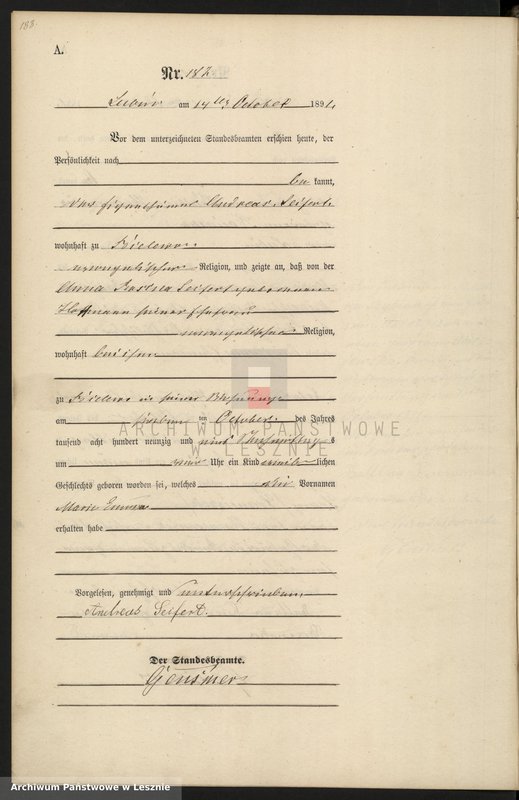 183.
A.
Nr. 182
am 14 ten October 1891
Vor dem unterzeichneten Standesbeamten erschien heute, der
Persönlichkeit nach
be kannt,
der Eigenthümer Andreas Seifert
wohnhaft zu
evangelischer Religion, und zeigte an, daß von der
Anna Seifert geborenen
Hoffmann seiner Ehefrau
evangelischer Religion,
wohnhaft bei ihm
zu in seiner Wohnung
am ten October des Jahres
tausend acht hundert neunzig und eins s
um Uhr ein Kind weib lichen
Geschlechts geboren worden sei, welches die Vornamen
Marie Emma
erhalten habe
Vorgelesen, genehmigt und unterschrieben
Andreas Seifert.
Der Standesbeamte.
ARCHIWUM PAŃSTWOWE
W LESZNIE
Archiwum Państwowe w Lesznie